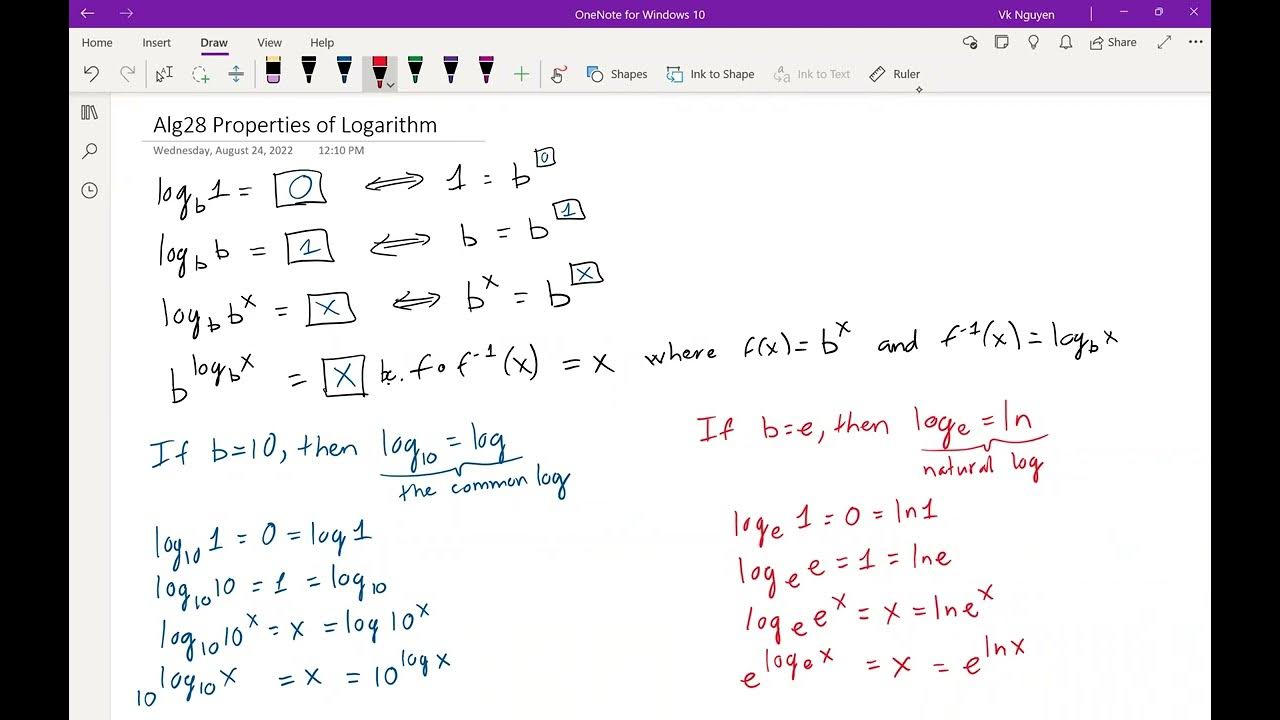 OneNote for Windows 10
Vk Nguyen
Home Insert Draw View Help
Share
Shapes Ink to Shape Ink to Text Ruler
Alg28 Properties of Logarithm
Wednesday, August 24, 2022 12:10 PM
log_b 1 = 0 ⟺ 1 = b^0
log_b b = 1 ⟺ b = b^1
log_b b^x = x ⟺ b^x = b^x
b^(log_b x) = x bc. f∘f^-1(x) = x where f(x) = b^x and f^-1(x) = log_b x
If b=10, then log_10 = log
the common log
log_10 1 = 0 = log 1
log_10 10 = 1 = log_10
log_10 10^x = x = log 10^x
10^(log_10 x) = x = 10^(log x)
If b=e, then log_e = ln
natural log
log_e 1 = 0 = ln 1
log_e e = 1 = ln e
log_e e^x = x = ln e^x
e^(log_e x) = x = e^(ln x)